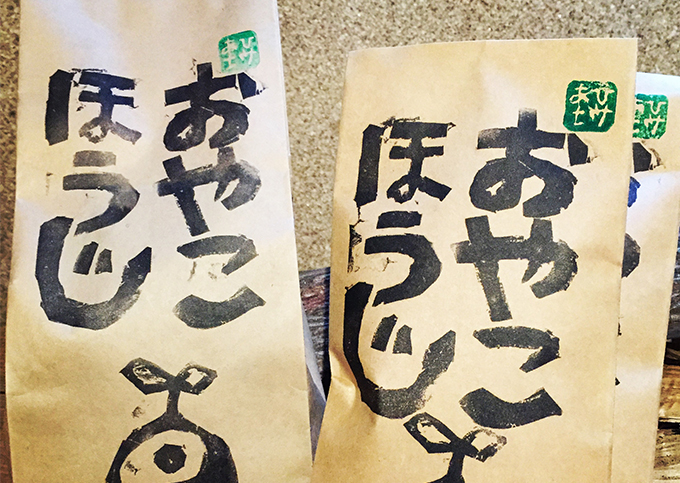 おやこ
ほうじ
おやこ
ほうじ